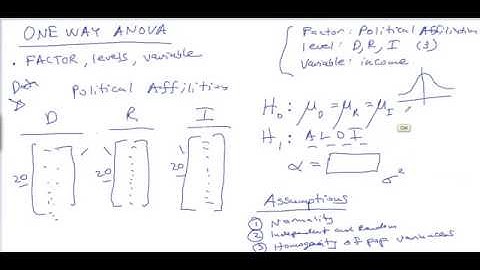 ONE WAY ANOVA
• FACTOR, levels, variable
Data
Political Affilities
D R I
20 20 20
Factor: Political Affiliation
level: D, R, I (3)
Variable: income
H₀: μ_D = μ_R = μ_I
H₁: A L O I
α =
σ²
Assumptions
① Normality
② Independent and Random
③ Homogeneity of pop variances